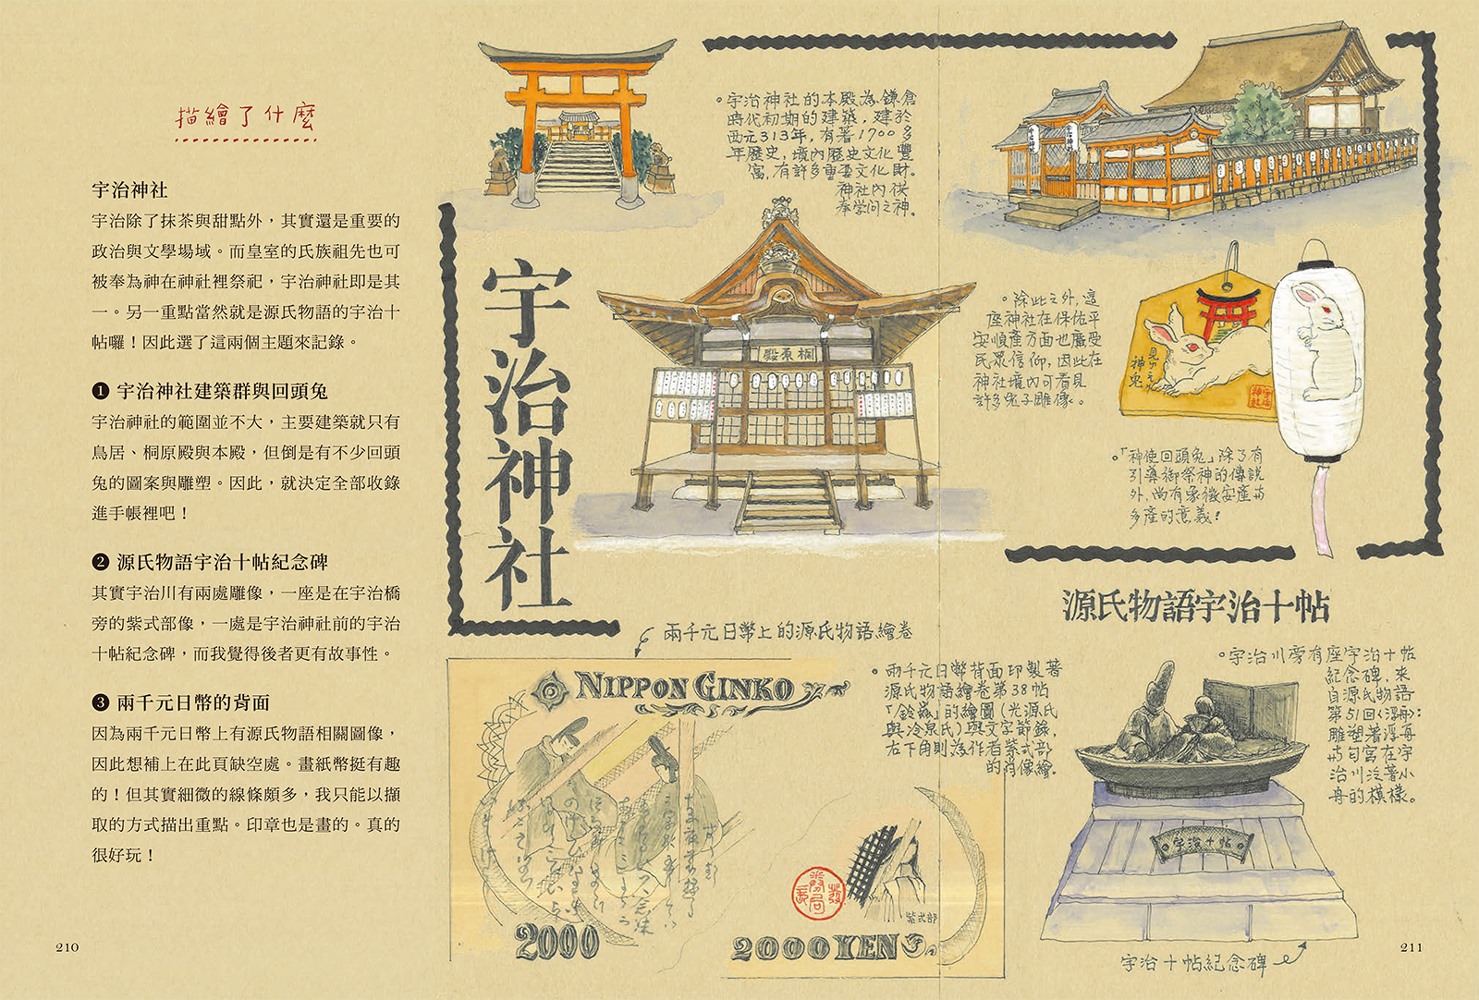 描繪了什麼
宇治神社
宇治除了抹茶與甜點外，其實還是重要的
政治與文學場域。而皇室的氏族祖先也可
被奉為神在神社裡祭祀，宇治神社即是其
一。另一重點當然就是源氏物語的宇治十
帖囉！因此選了這兩個主題來記錄。
❶ 宇治神社建築群與回頭兔
宇治神社的範圍並不大，主要建築就只有
鳥居、桐原殿與本殿，但倒是有不少回頭
兔的圖案與雕塑。因此，就決定全部收錄
進手帳裡吧！
❷ 源氏物語宇治十帖紀念碑
其實宇治川有兩處雕像，一座是在宇治橋
旁的紫式部像，一處是宇治神社前的宇治
十帖紀念碑，而我覺得後者更有故事性。
❸ 兩千元日幣的背面
因為兩千元日幣上有源氏物語相關圖像，
因此想補上在此頁缺空處。畫紙幣挺有趣
的！但其實細微的線條頗多，我只能以擷
取的方式描出重點。印章也是畫的。真的
很好玩！
210
宇治神社
宇治神社的本殿為鎌倉
時代初期的建築，建於
西元313年，有著1700多
年歷史，境內歷史文化豐
富，有許多重要文化財。
神社內供
奉学问之神。
桐原殿
除此之外，這
座神社在保佑平
安順產方面也廣受
民眾信仰，因此在
神社境內可看見
許多兔子雕像。
神兔
「神使回頭兔」除了有
引導御祭神的傳說
外，尚有象徵安產与
多產的意義！
兩千元日幣上的源氏物語繪卷
NIPPON GINKO
2000
2000 YEN
紫式部
兩千元日幣背面印製著
源氏物語繪卷第38帖
「鈴蟲」的繪圖（光源氏
與冷泉氏）與文字節錄，
右下角則為作者紫式部
的肖像繪。
源氏物語宇治十帖
宇治川旁有座宇治十帖
紀念碑，來
自源氏物語
第51回〈浮舟〉：
雕塑著浮舟
与匂宮在宇
治川泛著小
舟的模樣。
宇治十帖
宇治十帖紀念碑
211